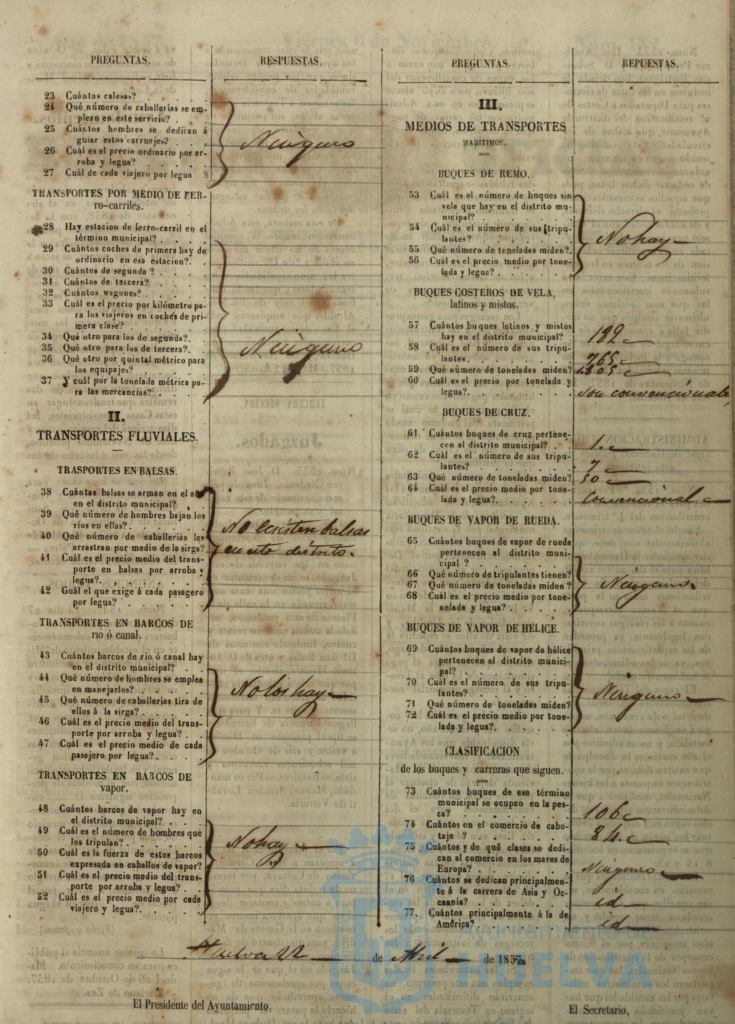 PREGUNTAS.
RESPUESTAS.
23 Cuántas calesas?
24 Qué número de caballerías se em-
plean en este servicio?
25 Cuántos hombres se dedican á
guiar estos carruajes?
26 Cuál es el precio ordinario por ar-
roba y legua?
27 Cuál de cada viajero por legua
Ninguno
TRANSPORTES POR MEDIO DE FER-
ro-carriles.
28 Hay estacion de ferro-carril en el
término municipal?
29 Cuántos coches de primera hay de
ordinario en esa estacion?
30 Cuántos de segunda?
31 Cuántos de tercera?
32 Cuántos wagones?
33 Cuál es el precio por kilómetro pa-
ra los viajeros en coches de pri-
mera clase?
34 Qué otro para los de segunda?
35 Qué otro para los de tercera?
36 Qué otro por quintal métrico para
los equipajes?
37 Y cuál por la tonelada métrica pa-
ra las mercancías?
Ninguno
II.
TRANSPORTES FLUVIALES.
TRASPORTES EN BALSAS.
38 Cuántas balsas se arman en el a
en el distrito municipal?
39 Qué número de hombres bajan los
rios en ellas?
40 Qué número de caballerías las
arrastran por medio de la sirga?
41 Cuál es el precio medio del trans-
porte en balsas por arroba y
legua?
42 Cuál el que exige á cada pasagero
por legua?
No ecsisten balsas
en este distrito.
TRANSPORTES EN BARCOS DE
rio ó canal.
43 Cuántos barcos de rio ó canal hay
en el distrito municipal?
44 Qué número de hombres se emplea
en manejarlos?
45 Qué número de caballerías tira de
ellos á la sirga?
46 Cuál es el precio medio del trans-
porte por arroba y legua?
47 Cuál es el precio medio de cada
pasajero por legua?
No los hay
TRANSPORTES EN BARCOS DE
vapor.
48 Cuántos barcos de vapor hay en
el distrito municipal?
49 Cuál es el número de hombres que
los tripulan?
50 Cuál es la fuerza de estos barcos
expresada en caballos de vapor?
51 Cuál es el precio medio del trans-
porte por arroba y legua?
52 Cuál es el precio medio por cada
viajero y legua?
No hay
PREGUNTAS.
REPUESTAS.
III.
MEDIOS DE TRANSPORTES
MARITIMOS.
BUQUES DE REMO.
53 Cuál es el número de buques sin
vela que hay en el distrito mu-
nicipal?
54 Cuál es el número de sus tripu-
lantes?
55 Qué número de toneladas miden?
56 Cuál es el precio medio por tone-
lada y legua?
No hay
BUQUES COSTEROS DE VELA,
latinos y mistos.
57 Cuántos buques latinos y mistos
hay en el distrito municipal?
58 Cuál es el número de sus tripu-
lantes.
59 Qué número de toneladas miden?
60 Cuál es el precio por tonelada y
legua?
765
son convencionales
BUQUES DE CRUZ.
61 Cuántos buques de cruz pertene-
cen al distrito municipal?
62 Cuál es el número de sus tripu-
lantes?
63 Qué número de toneladas miden?
64 Cuál es el precio medio por tone-
lada y legua?
1.
7
50
Convencional
BUQUES DE VAPOR DE RUEDA.
65 Cuántos buques de vapor de rueda
pertenecen al distrito muni-
cipal?
66 Qué número de tripulantes tienen?
67 Qué número de toneladas miden?
68 Cuál es el precio medio por tone-
nelada y legua?
Ninguno.
BUQUES DE VAPOR DE HÉLICE.
69 Cuántos buques de vapor de hélice
pertenecen al distrito munici-
pal?
70 Cuál es el número de sus tripu-
lantes?
71 Qué número de toneladas miden?
72 Cuál es el precio medio por tone-
lada y legua?
Ninguno
CLASIFICACION
de los buques y carreras que siguen.
73 Cuántos buques de ese término
municipal se ocupan en la pes-
ca?
106
74 Cuántos en el comercio de cabo-
taje?
84
75 Cuántos y de qué clases se dedi-
can al comercio en los mares de
Europa?
Ninguno
76 Cuántos se dedican principalmen-
te á la carrera de Asia y Oc-
ceanía?
id
77. Cuántos principalmente á la de
América?
id
Huelva 22 de Abril de 1857
HUELVA
El Presidente del Ayuntamiento,
El Secretario,